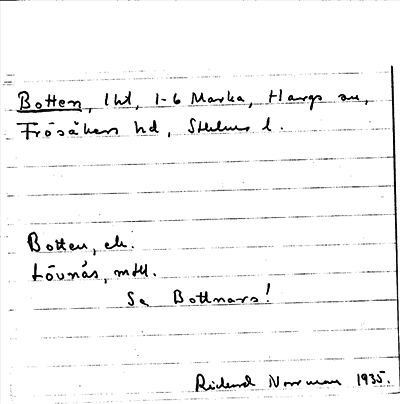 Botten, lht, 1-6 Marka, Hargs sn,
Frösåkers hd, Sthlms l.
Botten, ek.
Lövnäs, mtl.
Se Bottnars!
Rickard Norrman 1935.